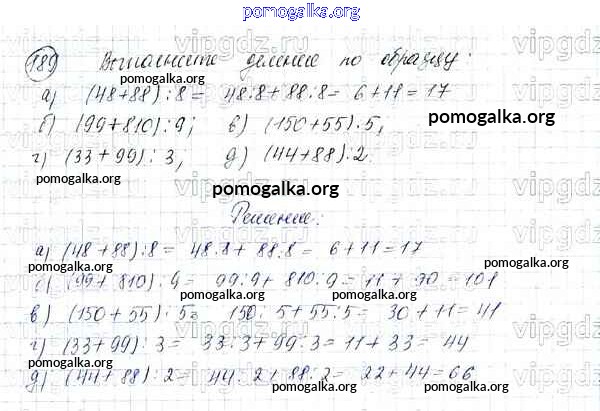 pomogalka.org
189 Выполните деление по образцу:
pomogalka.org
а) (48+88):8 = 48:8+88:8= 6+11=17
б) (99+810):9; в) (150+55):5;
pomogalka.org
г) (33+99):3, д) (44+88):2.
pomogalka.org
pomogalka.org
Решение:
а) (48+88):8= 48:8+88:8= 6+11=17
pomogalka.org
pomogalka.org
б) (99+810):9= 99:9+810:9=11+90=101
pomogalka.org
pomogalka.org
в) (150+55):5= 150:5+55:5= 30+11=41
г) (33+99):3= 33:3+99:3=11+33= 44
д) (44+88):2= 44:2+88:2= 22+44=66
pomogalka.org
pomogalka.org
vipgdz.ru